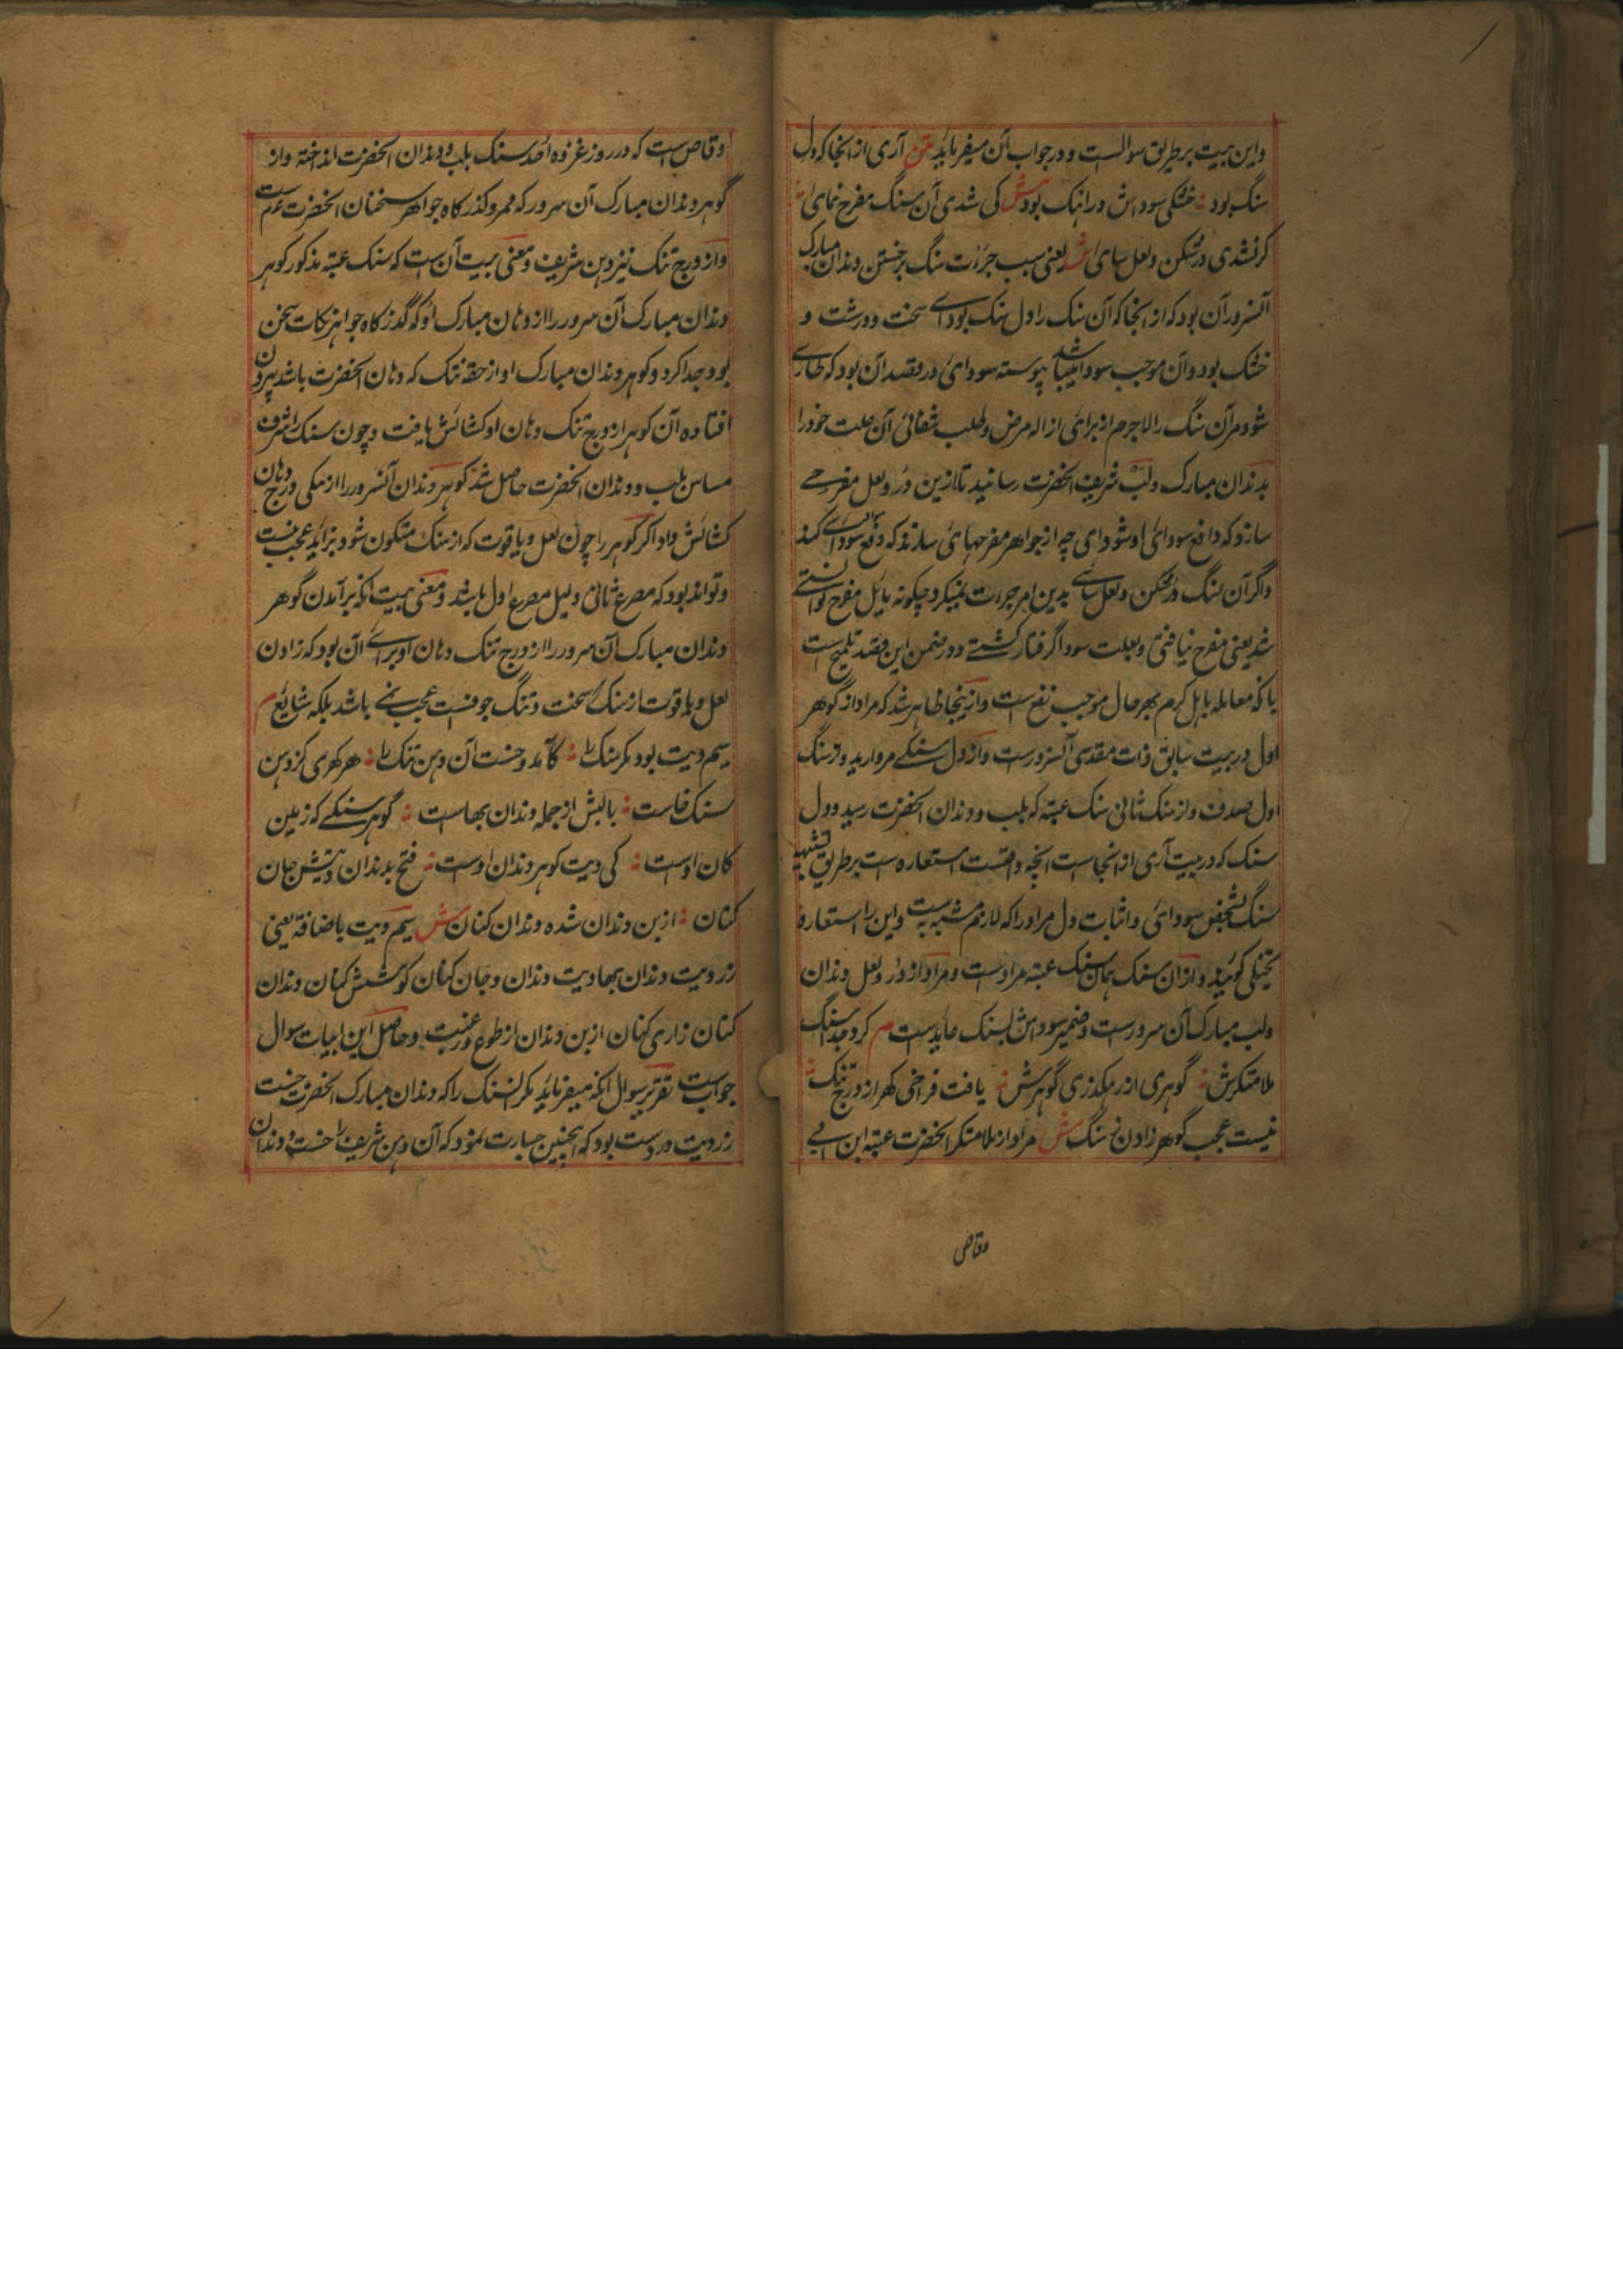 واین بیت بر طریق سوالست و در جواب آن میفرماید متن آری از انجا که دل
سنگ بود خشکی سوداش در اهنک بود ش کی شدی آن سنگ مفرح نمای
کر نشدی در شکن و لعل سای ش یعنی سبب جرات سنگ بر خستن دندان مبارک
آنسرور آن بود که از انجا که آن سنک را دل تنک بودای سخت و درشت و
خشک بود و آن موجب سودا پیوسته سودائ در قصد آن بود که طاری
شود مر آن سنگ را لاجرم از برائ ازاله مرض و طلب شفائ آن علت خود را
بدندان مبارک و لب شریف الحضرت رسانید تا ازین در و لعل مفرحے
سازد که دافع سودائ او شود ای چه از جواهر مفرحهای سازند که دفع سودا کند
واگر آن سنگ در شکن و لعل سای بدین امر جرات نمیکرد چکونه بایل مفرح
شد یعنی مفرح نیافتی و بعلت سودا گرفتار کشتے و در ضمن این قصه تلمیح است
یا که معامله باهل کرم بهر حال موجب نفع است و از ینجا ظاهر شد که مراد از گوهر
اول در بیت سابق ذات مقدس آنسرورست و از دل سنکے مروارید و از سنگ
اول صدف و از سنک ثانی سنک عتبه که بلب و دندان الحضرت رسید و دل
سنک که در بیت آری از انجاست انچه واقعست استعاره است بر طریق تشبیه
سنگ بشخص سودائ و اثبات دل مر او را که لازم مشبه به است و این را استعاره
تخییلی کویند و از ان سنک همان سنک عتبه مرادست و مراد از در و لعل دندان
ولب مبارک آن سرورست و ضمیر سوداش بسنک عایدست م کرد جدا سنگ
ملامتکرش گوهری از رهکذری گوهرش یافت فراخی کهر از درج تنک
نیست عجب گوهر زادن ز سنگ ش مراد از ملامتکر الحضرت عتبه ابن ابی
وقاص
وقاص است که در روز غزوه احد سنک بلب و دندان الحضرت انداخته و از
گوهر دندان مبارک آن سرور که ممر و کذر کاه جواهر سخنان الحضرت
و از درج تنک نیز دهن شریف و معنی بیت آن است که سنک عتبه مذکور کوهر
دندان مبارک آن سرور را از دهان مبارک او که گذر کاه جواهر نکات سخن
بود جدا کرد و کوهر دندان مبارک او از حقه تنک که دهان الحضرت باشد بیرون
افتاده آن کوهر از درج تنک دهان او کشائش یافت و چون سنک را شرف
مساس بلب و دندان الحضرت حاصل شد کوهر دندان آنسرور را از تنکی درج دهان
کشائش داد اکر کوهر را چون لعل و یاقوت که از سنک متکون شود بزاید عجب نیست
و تواند بود که مصرع ثانی دلیل مصرع اول باشد و معنی بیت آنکه برآمدن گوهر
دندان مبارک آن سرور را از درج تنک دهان او برای آن بود که زادن
لعل و یاقوت از سنک سخت و تنگ جوفست عجب نمے باشد بلکه شایع م
سیم دیت بود مکر سنک را کامد و خست آن دهن تنک را هر کهری کز دهن
سنک خاست بالبش از جمله دندان بهاست گوهر سنکے که زمین
کان اوست کی دیت کوهر دندان اوست فتح بدندان دیتش جان
کنان از بن دندان شده دندان کنان ش سیم دیت باضافة یعنی
زر دیت دندان بها دیت دندان و جان کنان کوشش کنان دندان
کنان زاری کنان از بن دندان از طوع و رغبت و حاصل این ابیات سوال
جوابست تقریر سوال انکه میفرماید مکر ان سنک را که دندان مبارک الحضرت خست
زر دیت در دست بود که اینچنین جسارت نمود که آن دهن شریف را خست و دندان